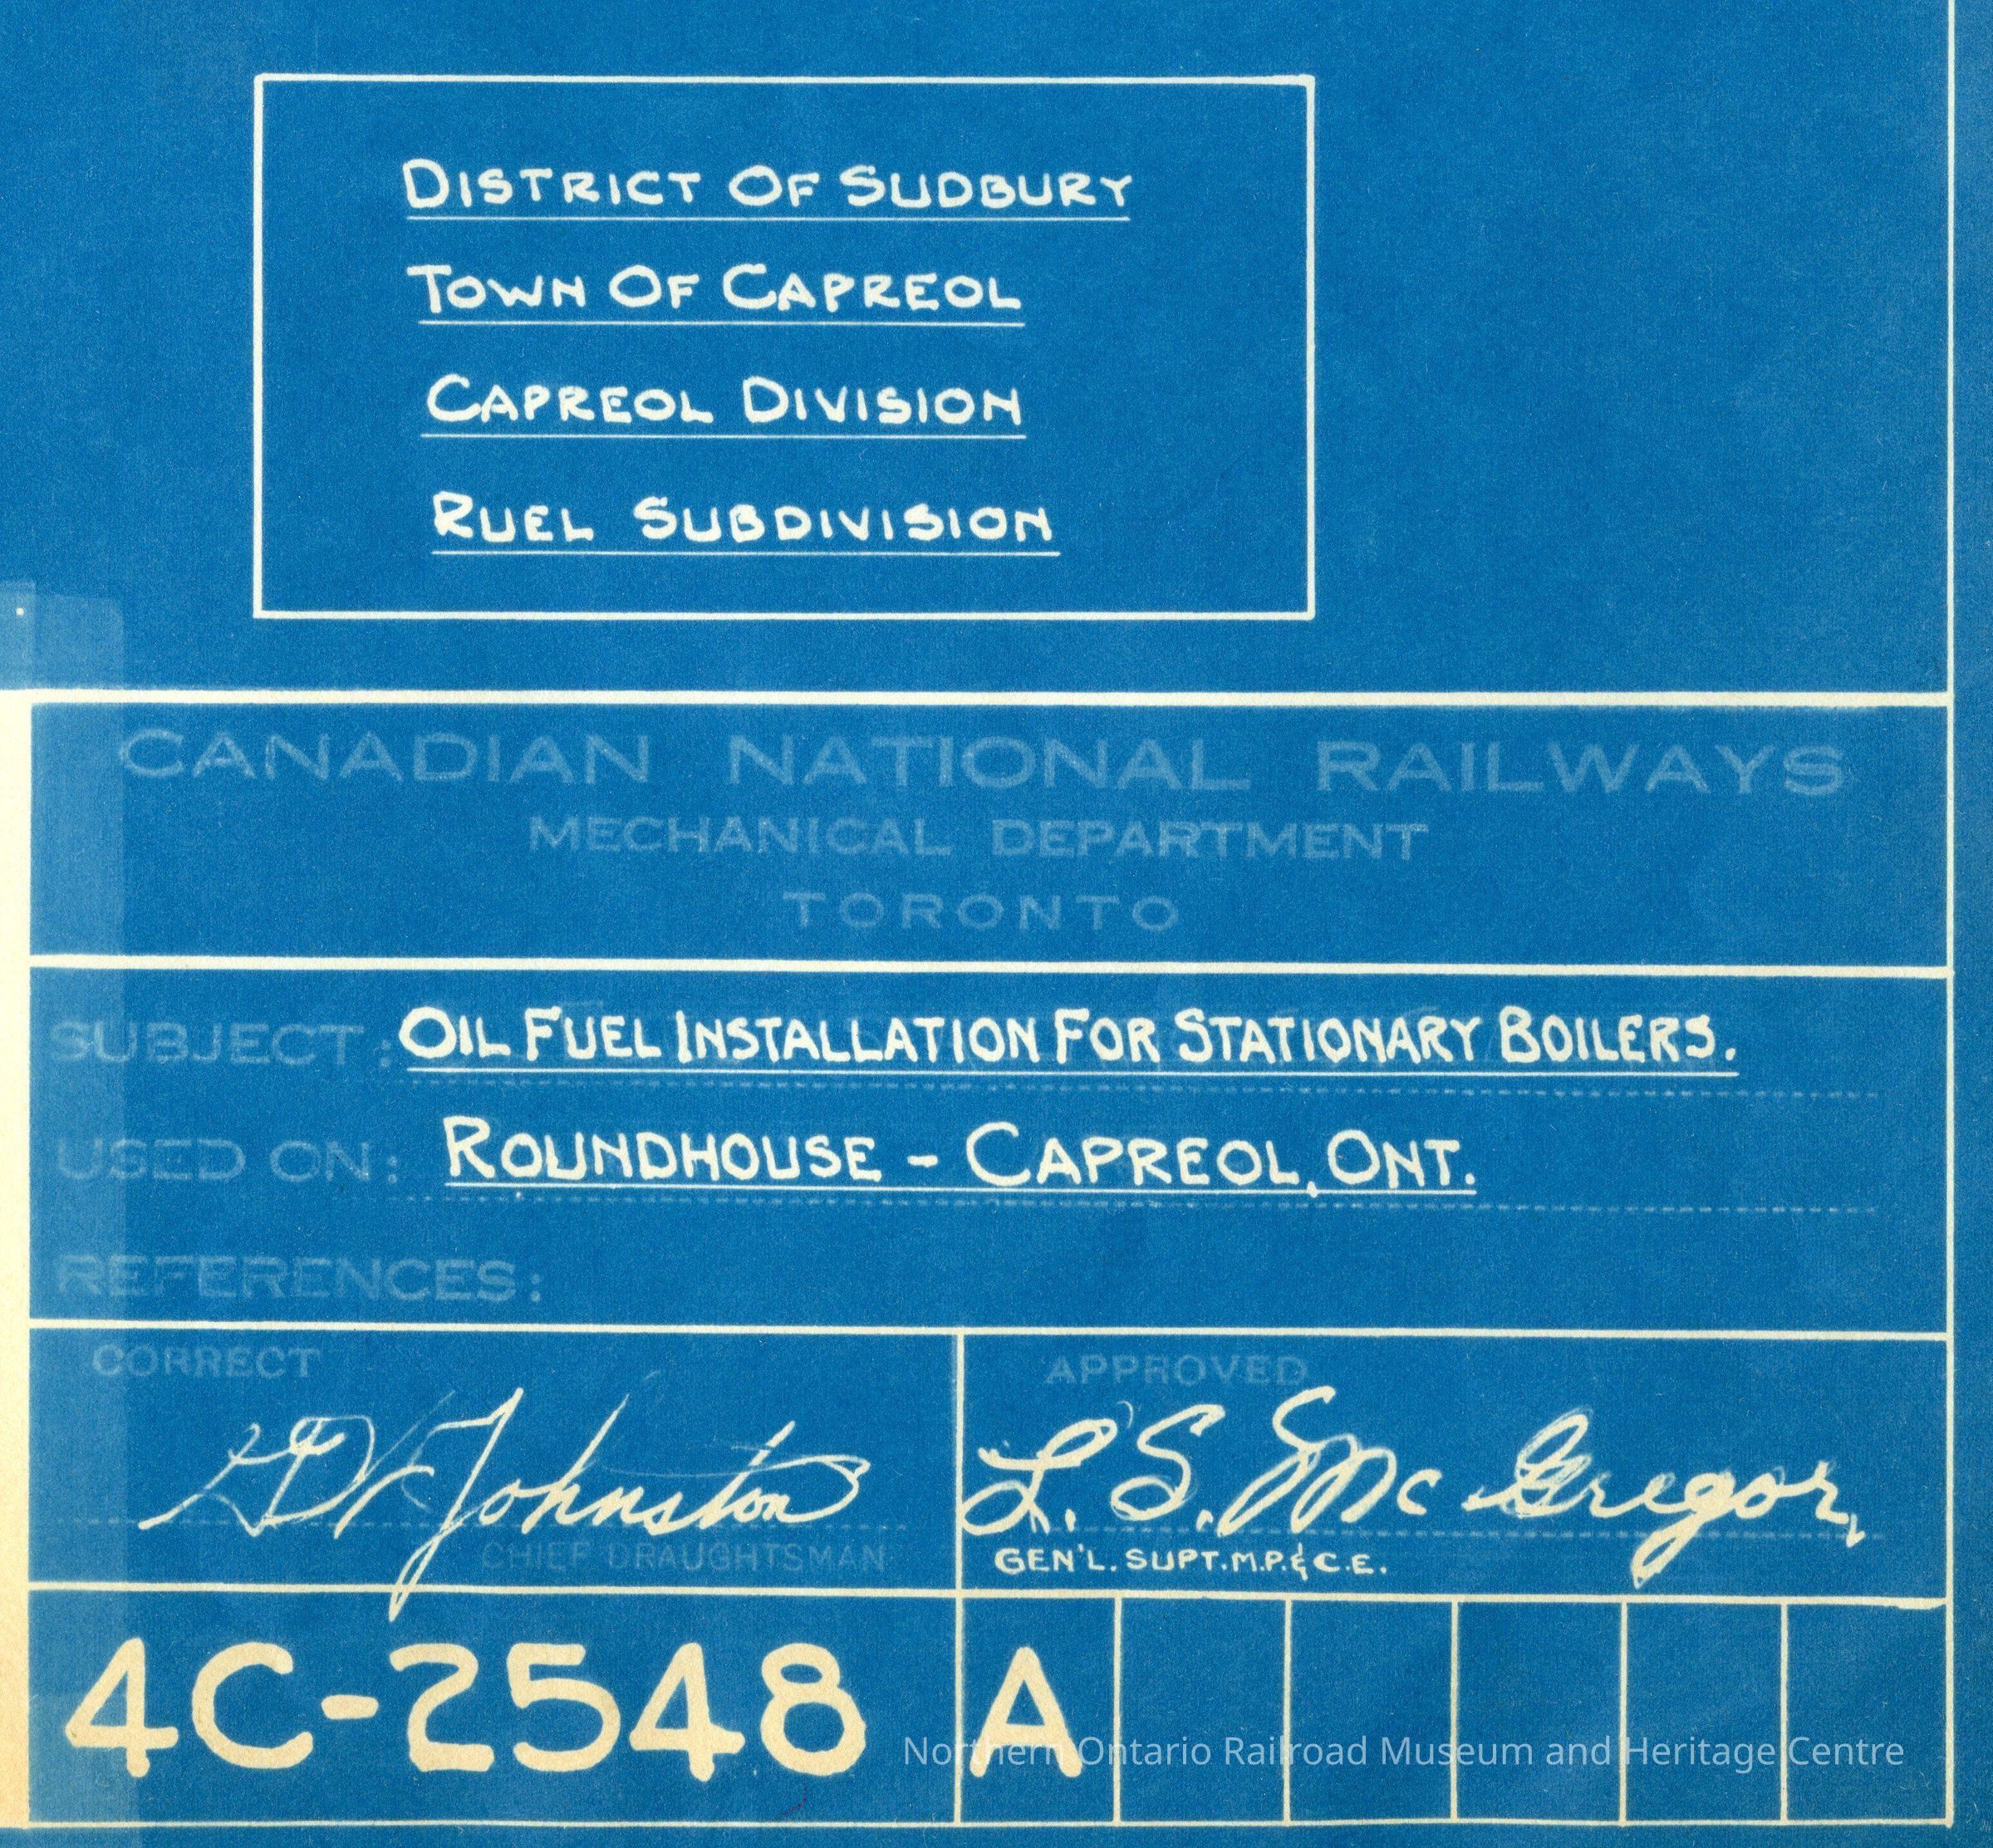 DISTRICT OF SUDBURY
TOWN OF CAPREOL
CAPREOL DIVISION
RUEL SUBDIVISION
CANADIAN NATIONAL RAILWAYS
MECHANICAL DEPARTMENT
TORONTO
SUBJECT: OIL FUEL INSTALLATION FOR STATIONARY BOILERS.
USED ON: ROUNDHOUSE - CAPREOL, ONT.
REFERENCES:
CORRECT
Johnston
CHIEF DRAUGHTSMAN
APPROVED
L. S. McGregor,
GEN'L. SUPT. M.P. & C.E.
4C-2548 A
Northern Ontario Railroad Museum and Heritage Centre